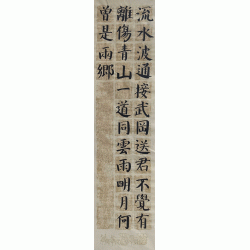 流水波通接武岡送君不覺有
離傷青山一道同雲雨明月何
曾是兩鄉